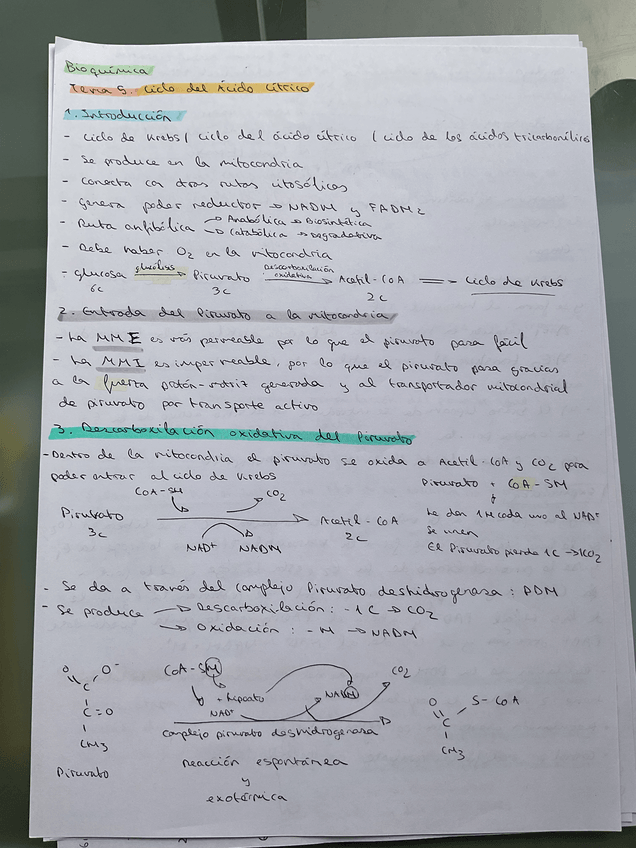 Bioquímica
Tema 5. Ciclo del Ácido Cítrico
1. Introducción
- Ciclo de Krebs / ciclo del ácido cítrico / ciclo de los ácidos tricarboxílicos
- Se produce en la mitocondria
- Conecta con otras rutas citosólicas
- Genera poder reductor → NADH y FADH2
- Ruta anfibólica → Anabólica → Biosintética
→ Catabólica → Degradativa
- Debe haber O2 en la mitocondria
- glucosa glucólisis → Piruvato Descarboxilación oxidativa → Acetil-CoA Ciclo de Krebs
6c 3c 2c
2. Entrada del Piruvato a la mitocondria
- La MME es más permeable por lo que el piruvato pasa fácil
- La MMI es impermeable, por lo que el piruvato pasa gracias
a la fuerza protón-motriz generada y al transportador mitocondrial
de piruvato por transporte activo
3. Descarboxilación oxidativa del Piruvato
- Dentro de la mitocondria el piruvato se oxida a Acetil-CoA y CO2 para
poder entrar al ciclo de Krebs
Piruvato + CoA-SH
CoA-SH CO2
Piruvato → Acetil-CoA
3c 2c
NAD+ NADH
Le dan 1H cada uno al NAD+
Se unen
El Piruvato pierde 1C → 1CO2
- Se da a través del complejo Piruvato deshidrogenasa: PDH
- Se produce → Descarboxilación: -1C → CO2
→ Oxidación: -H → NADH
O O-
C
C=O
CH3
Piruvato
CoA-SH CO2
NAD+ NADH
complejo piruvato deshidrogenasa
reacción espontánea
y
exotérmica
O S-CoA
C
CH3